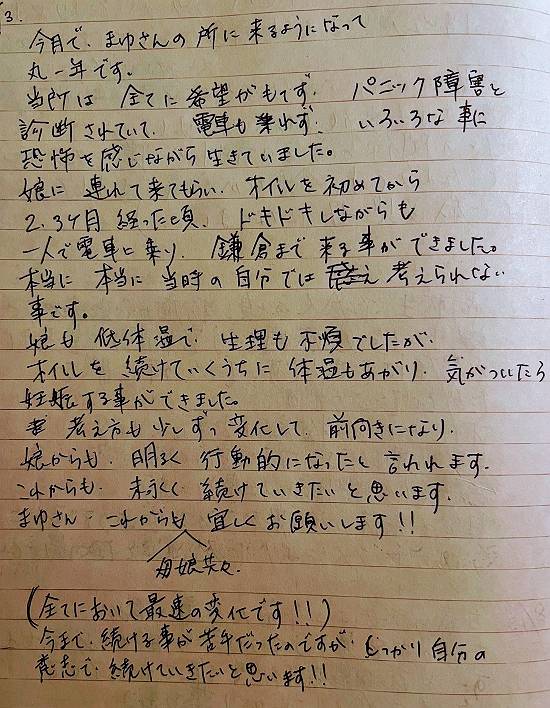 3.
今月で、まゆさんの所に来るようになって
丸一年です。
当所は 全てに希望がもてず、 パニック障害と
診断されていて、 電車も乗れず、 いろいろな事に
恐怖を感じながら生きていました。
娘に 連れて来てもらい、オイルを初めてから
2、3ヶ月 経った頃、 ドキドキしながらも
一人で電車に乗り、 鎌倉まで 来る事ができました。
本当に 本当に 当時の自分では 考えられない
事です。
娘も 低体温で、生理も不順でしたが、
オイルを 続けていくうちに 体温もあがり、気がついたら
妊娠する事ができました。
考え方も少しずつ変化して、前向きになり、
娘からも、明るく 行動的になったと 言われます。
これからも、末永く 続けていきたいと思います。
まゆさん、これからも 宜しくお願いします!!
母娘共々、
(全てにおいて最速の変化です!!)
今まで、続ける事が苦手だったのですが、しっかり自分の
意志で、続けていきたいと思います!!